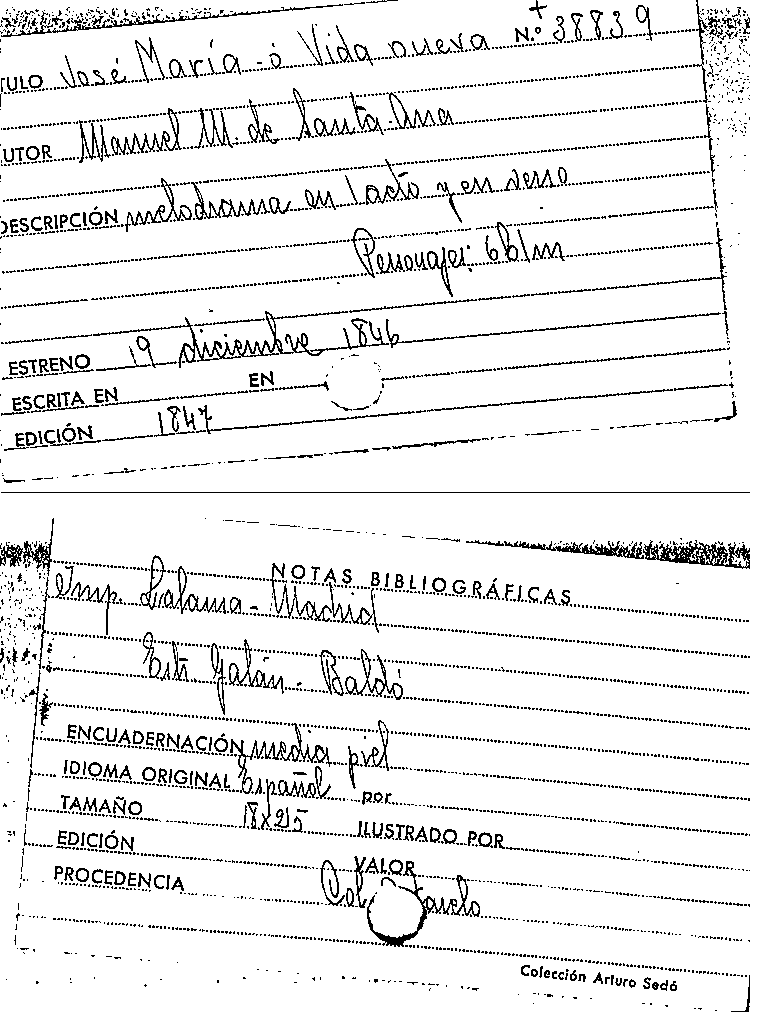 +
TULO José María - ó Vida nueva N.º 38839
UTOR Manuel M. de Santa-Ana
DESCRIPCIÓN melodrama en 1 acto y en verso
Personajes: 6 b/m
ESTRENO 19 diciembre 1846
ESCRITA EN EN
EDICIÓN 1847
NOTAS BIBLIOGRÁFICAS
Imp. Lalama - Madrid
Galán - Baldó
ENCUADERNACIÓN media piel
IDIOMA ORIGINAL Español por
TAMAÑO 18x25 ILUSTRADO POR
EDICIÓN
VALOR
PROCEDENCIA Col.
Colección Arturo Sedó